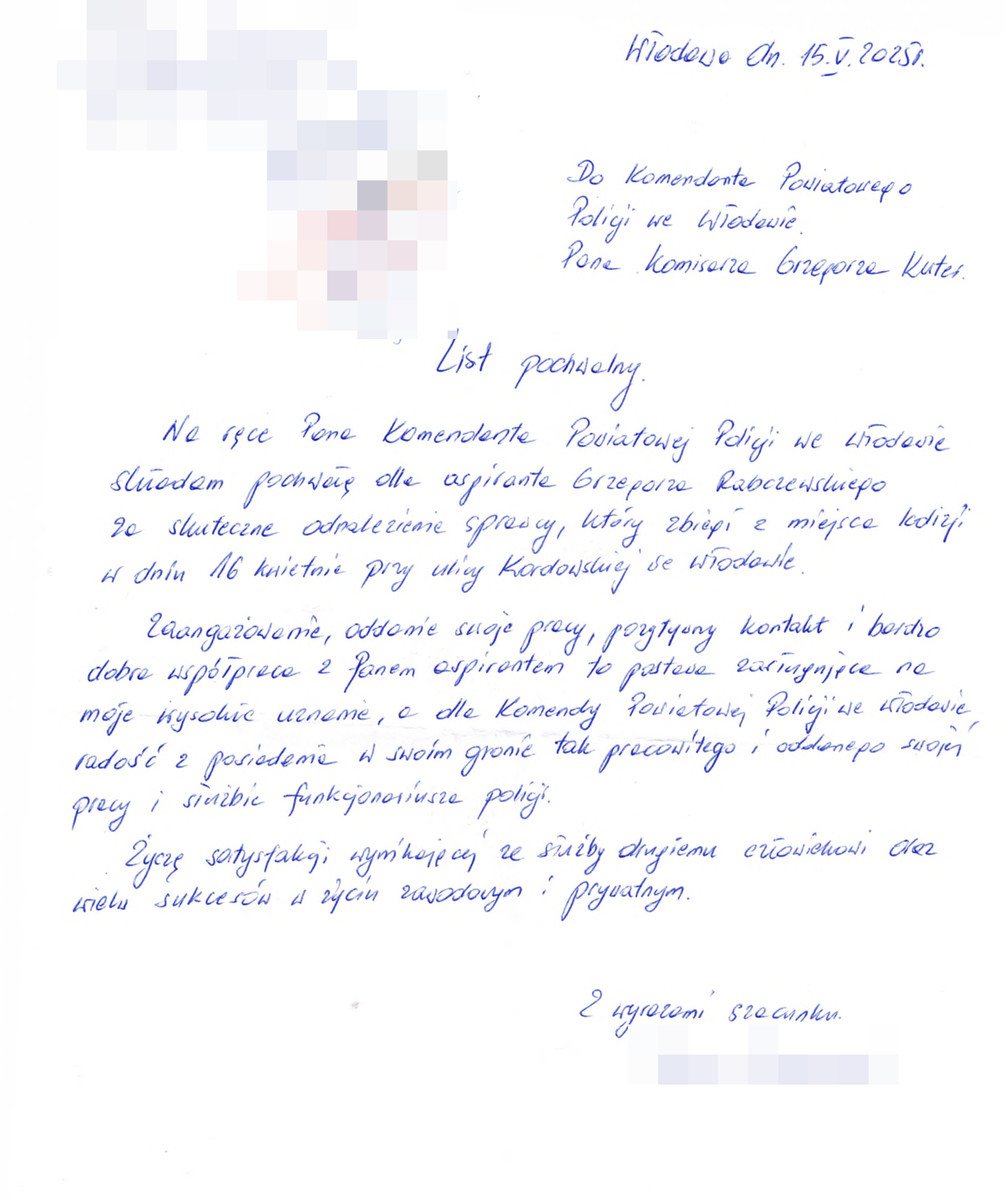 Włodawa dn. 15.V.2025r.
Do Komendanta Powiatowego
Policji we Włodawie.
Pana Komisarza Grzegorza Kuter.
List pochwalny.
Na ręce Pana Komendanta Powiatowej Policji we Włodawie
składam pochwałę dla aspiranta Grzegorza Rabczewskiego
za skuteczne odnalezienie sprawcy, który zbiegł z miejsca kolizji
w dniu 16 kwietnia przy ulicy Korolowskiej we Włodawie.
Zaangażowanie, oddanie swoje pracy, pozytywny kontakt i bardzo
dobra współpraca z Panem aspirantem to postawa zasługująca na
moje wysokie uznanie, a dla Komendy Powiatowej Policji we Włodawie
radość z posiadania w swoim gronie tak pracowitego i oddanego swojej
pracy i służbie funkcjonariusza policji.
Życzę satysfakcji wynikającej ze służby drugiemu człowiekowi oraz
wielu sukcesów w życiu zawodowym i prywatnym.
Z wyrazami szacunku.